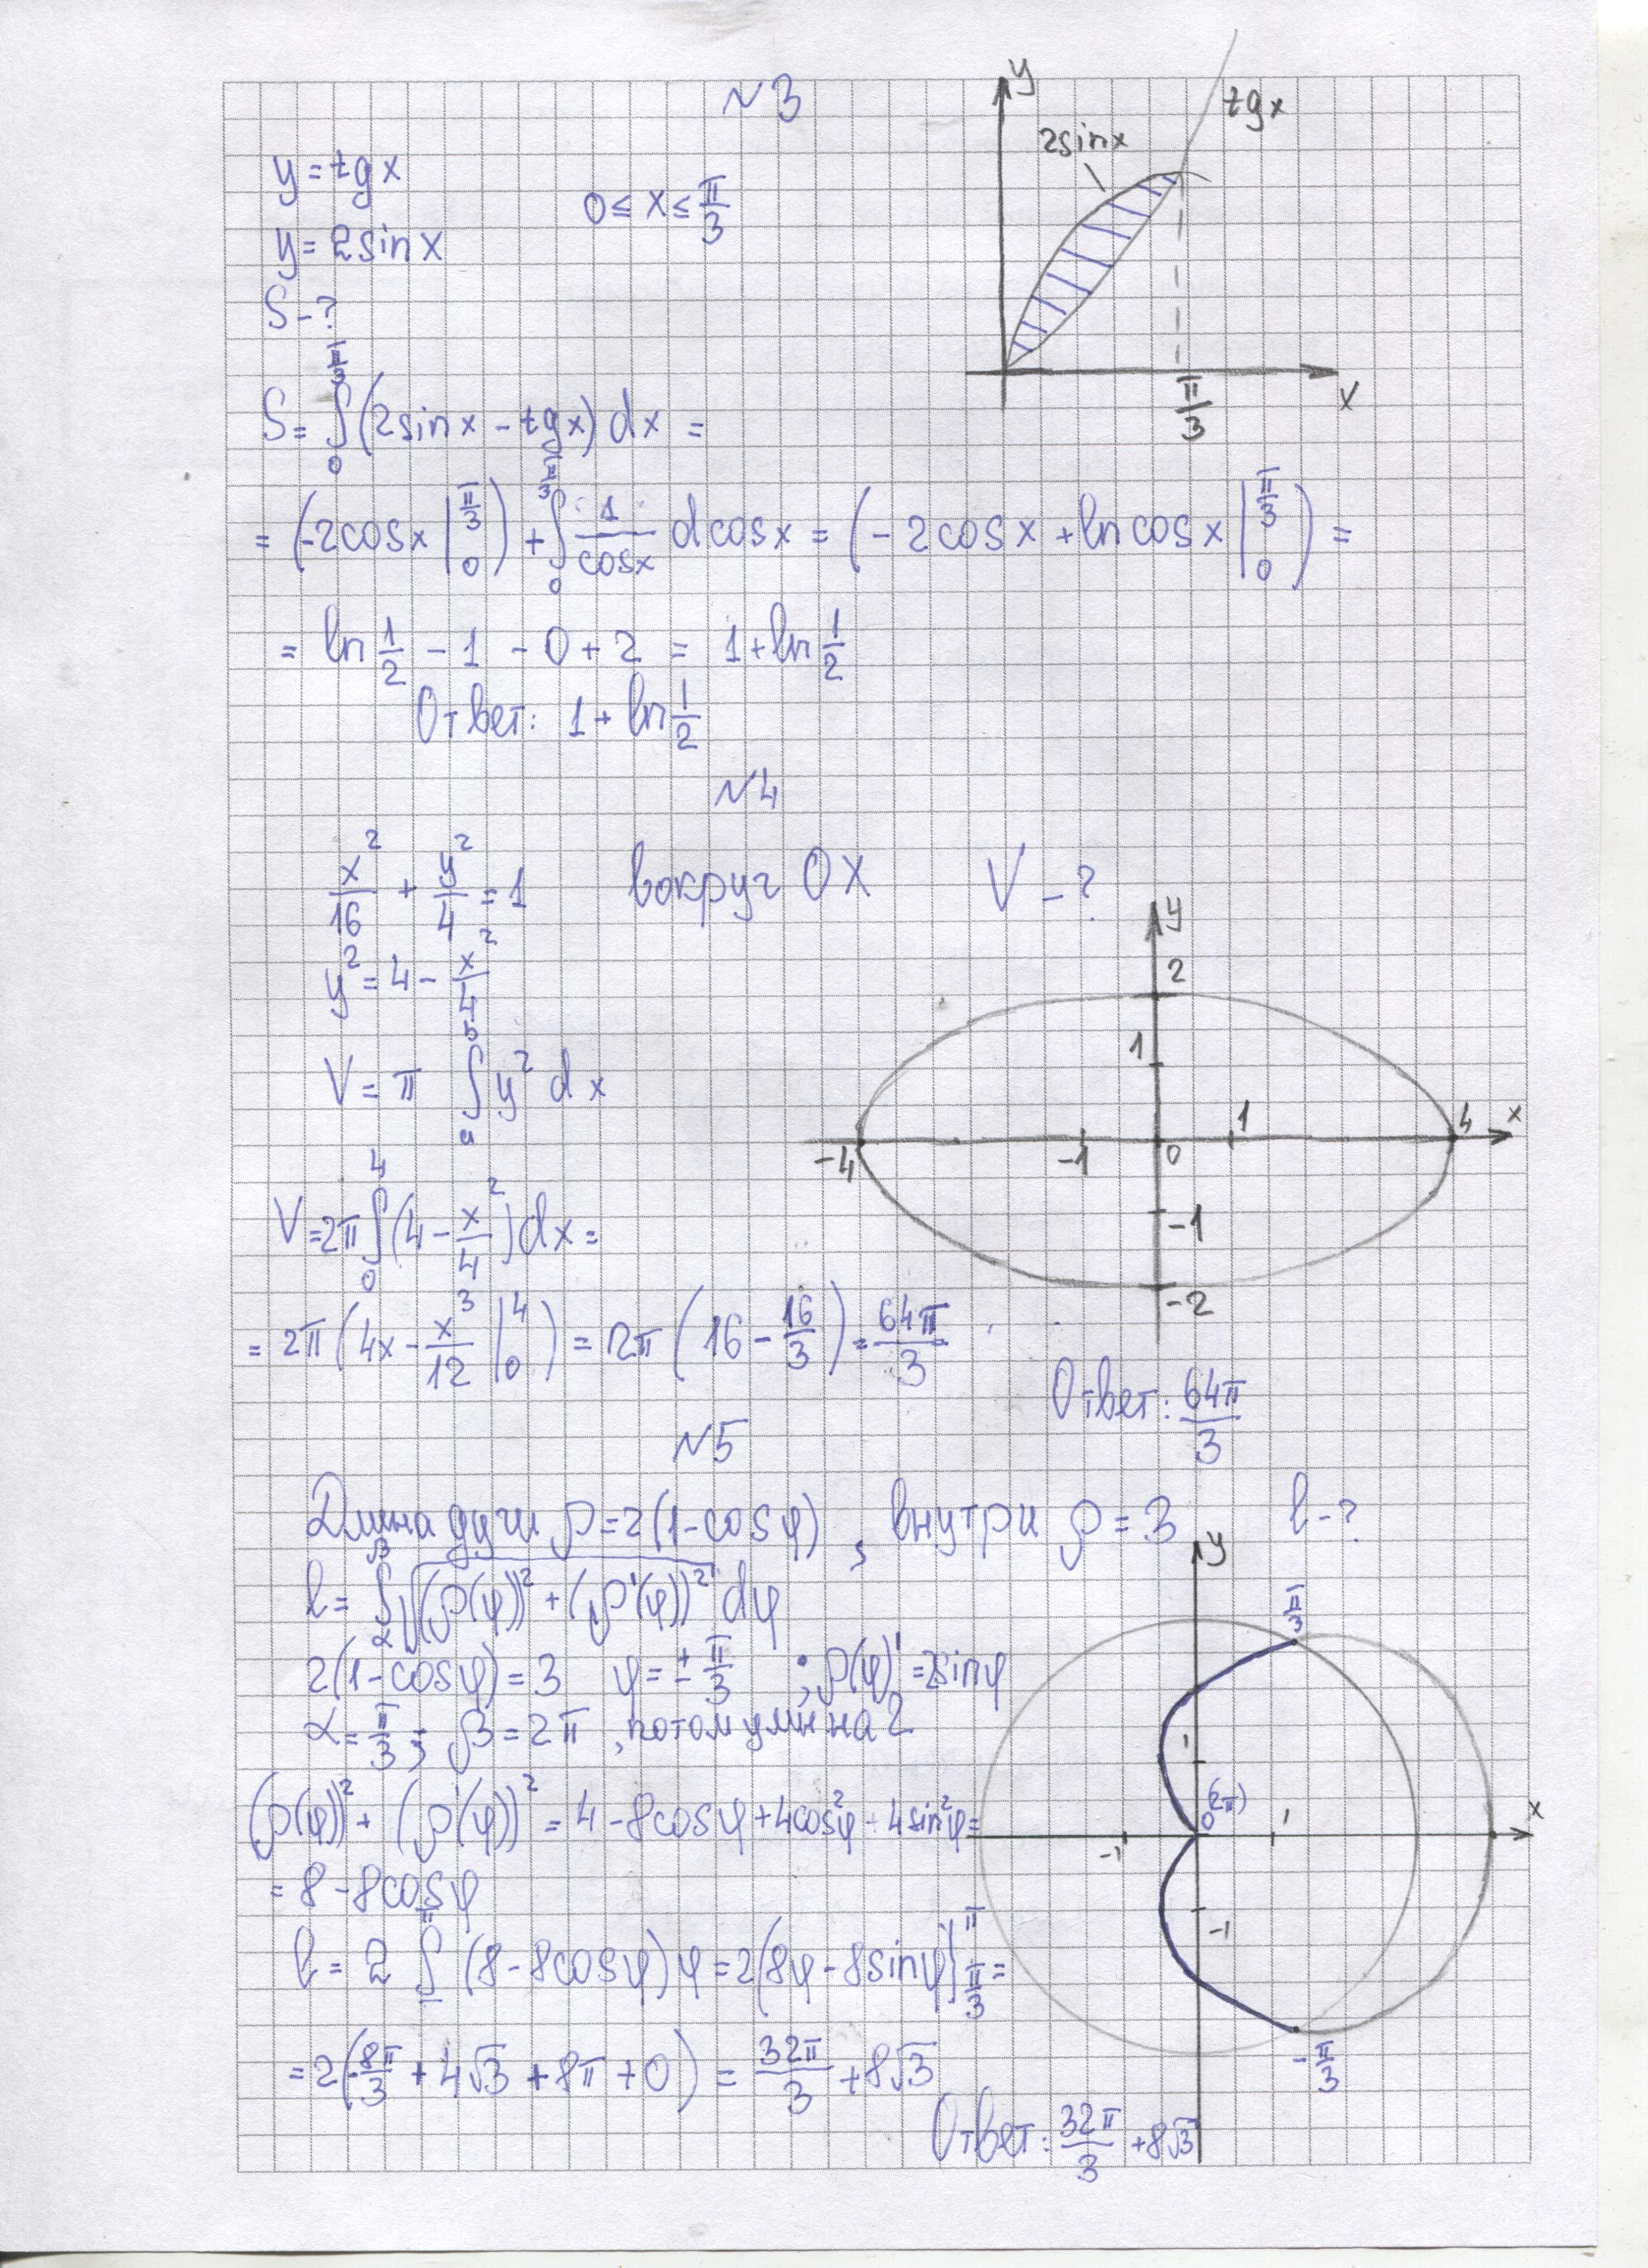 №3
y = tg x
y = 2sin x
0 ≤ x ≤ π/3
S - ?
y
tg x
2sinx
π/3
x
S = ∫₀^(π/3) (2sin x - tg x) dx =
= (-2cos x |₀^(π/3)) + ∫₀^(π/3) 1/cosx d cosx = (-2cos x + ln cos x |₀^(π/3)) =
= ln 1/2 - 1 - 0 + 2 = 1 + ln 1/2
Ответ: 1 + ln 1/2
№4
x²/16 + y²/4 = 1 вокруг OX V - ?
y² = 4 - x²/4
V = π ∫ₐᵇ y² dx
y
2
1
-4
-1
0
1
4
x
-1
-2
V = 2π ∫₀⁴ (4 - x²/4) dx =
= 2π (4x - x³/12 |₀⁴) = 2π (16 - 16/3) = 64π/3
Ответ: 64π/3
№5
Длина дуги ρ = 2(1-cos φ), внутри ρ = 3 l - ?
l = ∫_α^β √((ρ(φ))² + (ρ'(φ))²) dφ
2(1-cosφ) = 3 φ = ± π/3 ; ρ(φ)' = 2sinφ
α = π/3 ; β = 2π, потом умн на 2
(ρ(φ))² + (ρ'(φ))² = 4 - 8cosφ + 4cos²φ + 4sin²φ =
= 8 - 8cosφ
l = 2 ∫^π (8 - 8cosφ) φ = 2(8φ - 8sinφ)|_(π/3)^π =
= 2(-8π/3 + 4√3 + 8π + 0) = 32π/3 + 8√3
Ответ: 32π/3 + 8√3
y
π/3
1
0 (2π)
-1
1
x
-1
-π/3